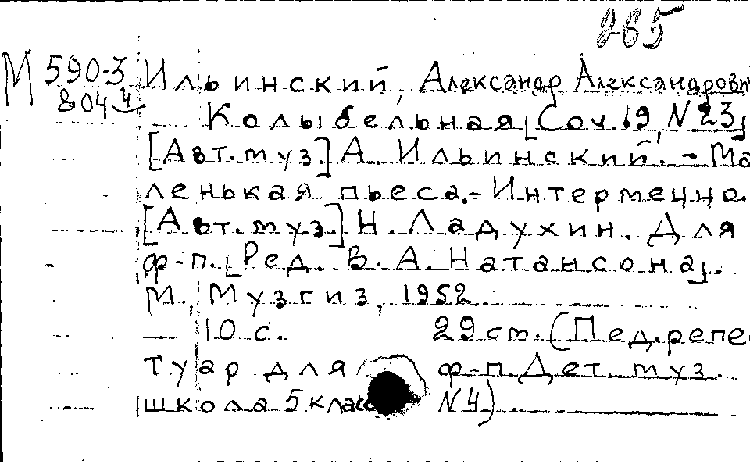 265
М 590-3 Ильинский, Александр Александрович
804 Колыбельная [Соч. 19, N 23]
[Авт. муз.] А. Ильинский. - Ма-
ленькая пьеса. - Интермеццо.
[Авт. муз.] Н. Ладухин. Для
ф-п. [Ред. В. А. Натансона].
М., Музгиз, 1952.
10 с. 29 см. (Пед. репе-
туар для ф-п. Дет. муз.
школа 5 класс N 4)